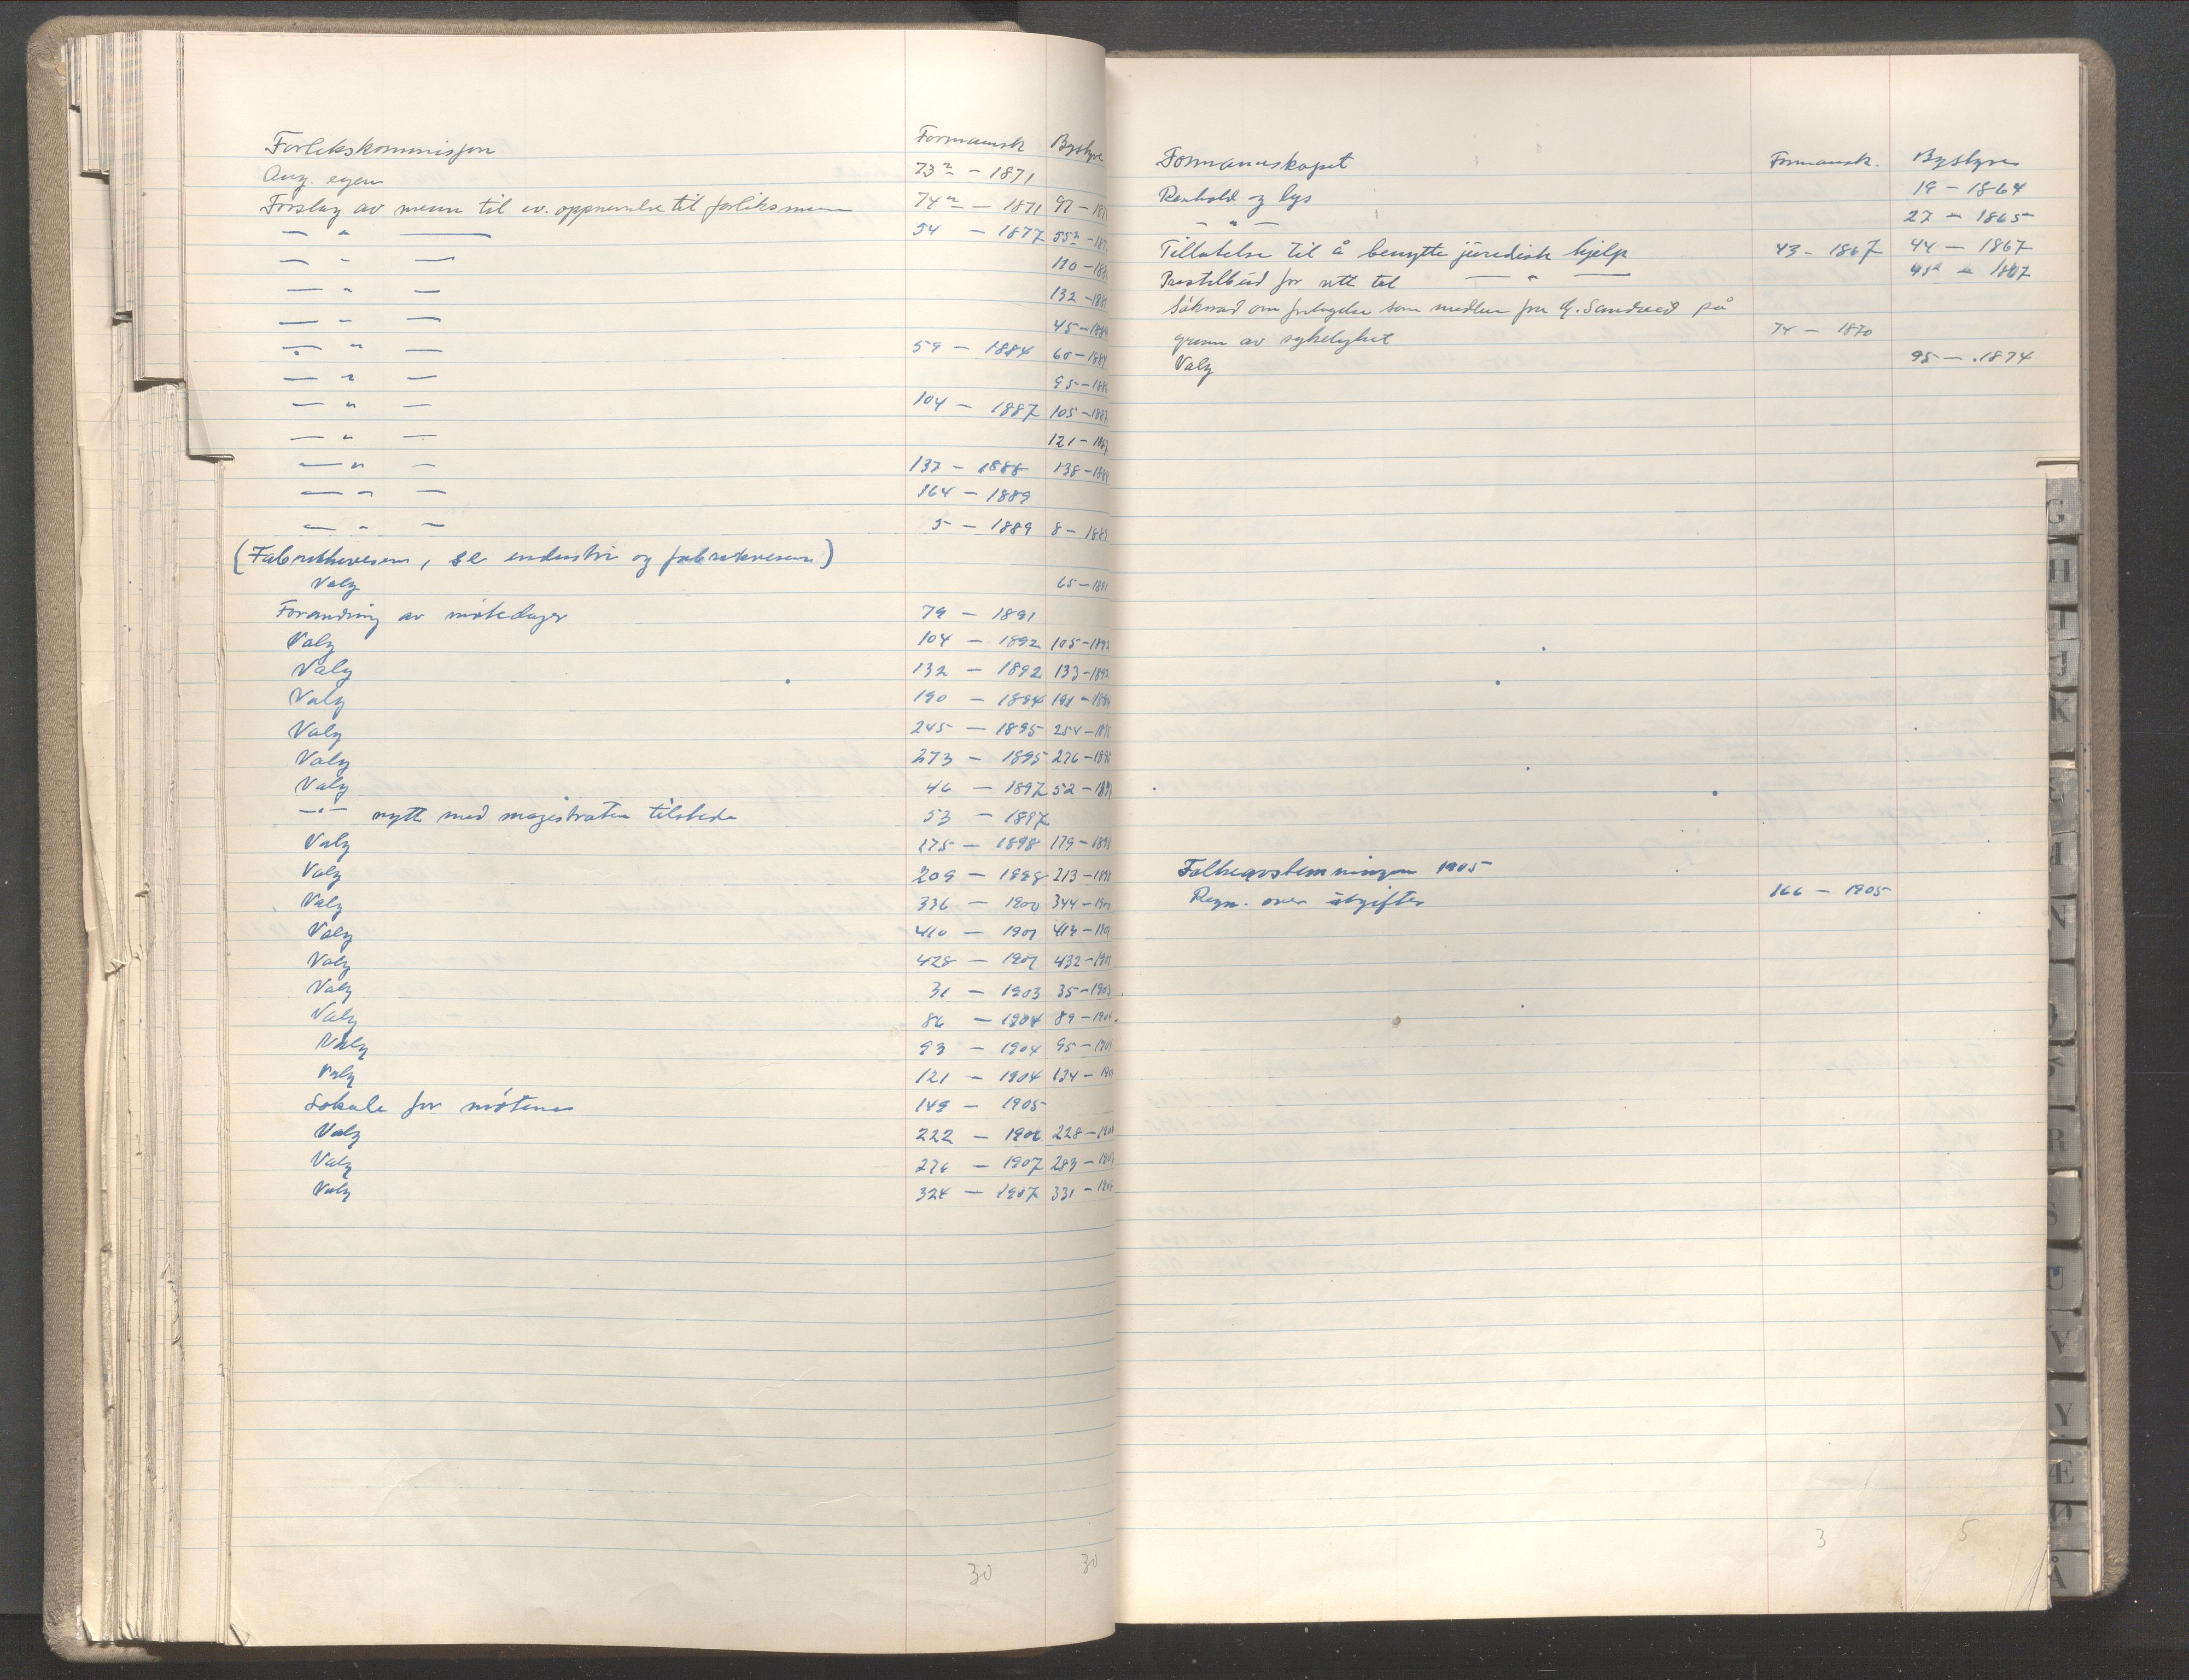 Forlikskommisjon Formannsk Bystyre
Ang. egen 73 - 1871
Forslag av menn til ev. oppnevnelse til forliksmenn 74 - 1871 97 - 18
— " — 54 - 1877 55 - 187
— " — 110 - 188
— " — 132 - 188
— " — 45 - 188
— " — 59 - 1884 60 - 188
— " — 95 - 188
— " — 104 - 1887 105 - 188
— " — 121 - 188
— " — 137 - 1888 138 - 188
— " — 164 - 1889
— " — 5 - 1889 8 - 188
(Fabrikkvesen, se industri og fabrikkvesen)
Valg 65 - 1891
Forandring av møtedager 79 - 1891
Valg 104 - 1892 105 - 1892
Valg 132 - 1892 133 - 1892
Valg 190 - 1894 191 - 1894
Valg 245 - 1895 254 - 1895
Valg 273 - 1895 276 - 1895
Valg 46 - 1897 52 - 1897
— " — nytt med magistraten tilstede 53 - 1897
Valg 175 - 1898 179 - 1898
Valg 209 - 1898 213 - 1898
Valg 336 - 1900 344 - 1900
Valg 410 - 1901 413 - 1901
Valg 428 - 1901 432 - 1901
Valg 31 - 1903 35 - 1903
Valg 86 - 1904 89 - 1904
Valg 93 - 1904 95 - 1904
Valg 121 - 1904 134 - 1904
Lokale for møtene 149 - 1905
Valg 222 - 1906 228 - 1906
Valg 276 - 1907 283 - 1907
Valg 324 - 1907 331 - 1907
30 30
Formannskapet Formannsk. Bystyre
Renhold og lys 19 - 1864
— " — 27 - 1865
Tillatelse til å benytte juridisk hjelp 43 - 1867 44 - 1867
Pristilbud for rett til — " — 45 - 1867
Söknad om fritagelse som medlem fra G. Sandved på
grunn av sykelighet 74 - 1870
Valg 95 - 1874
Folkeavstemningen 1905
Regn. over utgifter 166 - 1905
3 5
G
H
I
J
K
N
R
S
U
V
Y
Æ
Å